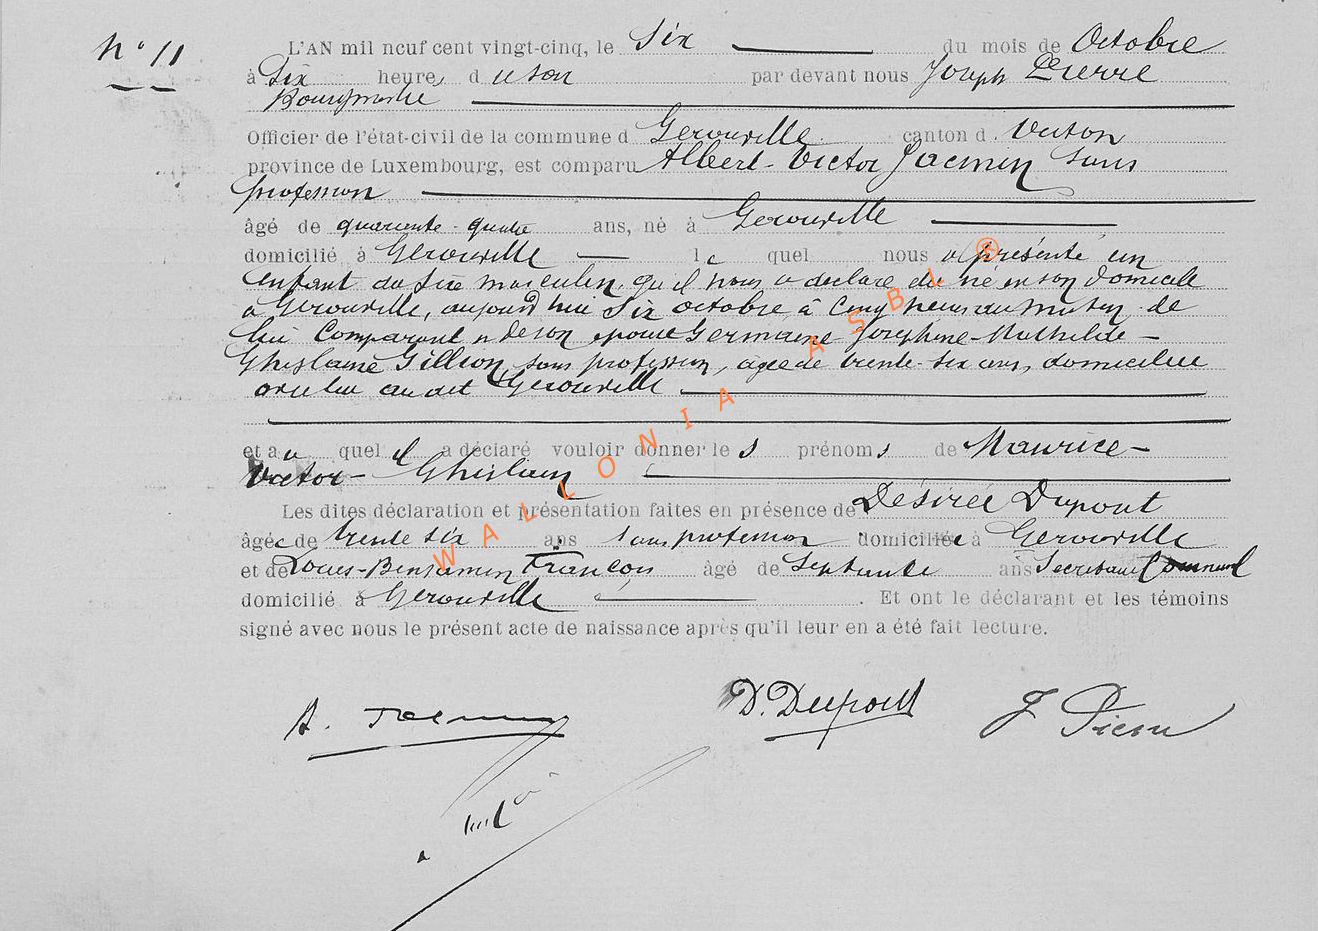 N° 11
L'AN mil neuf cent vingt-cinq, le Six du mois de Octobre
à Dix heure, d u soir par devant nous Joseph Pierre
Bourgmestre
Officier de l'état-civil de la commune d Gerouville canton d. Virton
province de Luxembourg, est comparu Albert-Victor Jacmin sans
profession
âgé de quarante-quatre ans, né à Gerouville
domicilié à Gerouville le quel nous a présenté un
enfant du sexe masculin, qu'il nous a déclaré être né en son domicile
à Gerouville, aujourd'hui Six octobre à Cinq heures du matin de
lui Comparant et de son épouse Germaine Josephine-Mathilde-
Ghislaine Gillion, sans profession, âgée de trente-six ans, domiciliée
avec lui au dit Gerouville
et au quel il a déclaré vouloir donner le s prénom s de Maurice-
Victor-Ghislain
Les dites déclaration et présentation faites en présence de Désirée Dupont
âgée de trente six ans sans profession domiciliée à Gerouville
et de Louis-Benjamin François âgé de Septante ans Secrétaire Communal
domicilié à Gerouville. Et ont le déclarant et les témoins
signé avec nous le présent acte de naissance après qu'il leur en a été fait lecture.
A. Jacmin
D. Dupont
J Pierre
WALLONIA ASBL ®